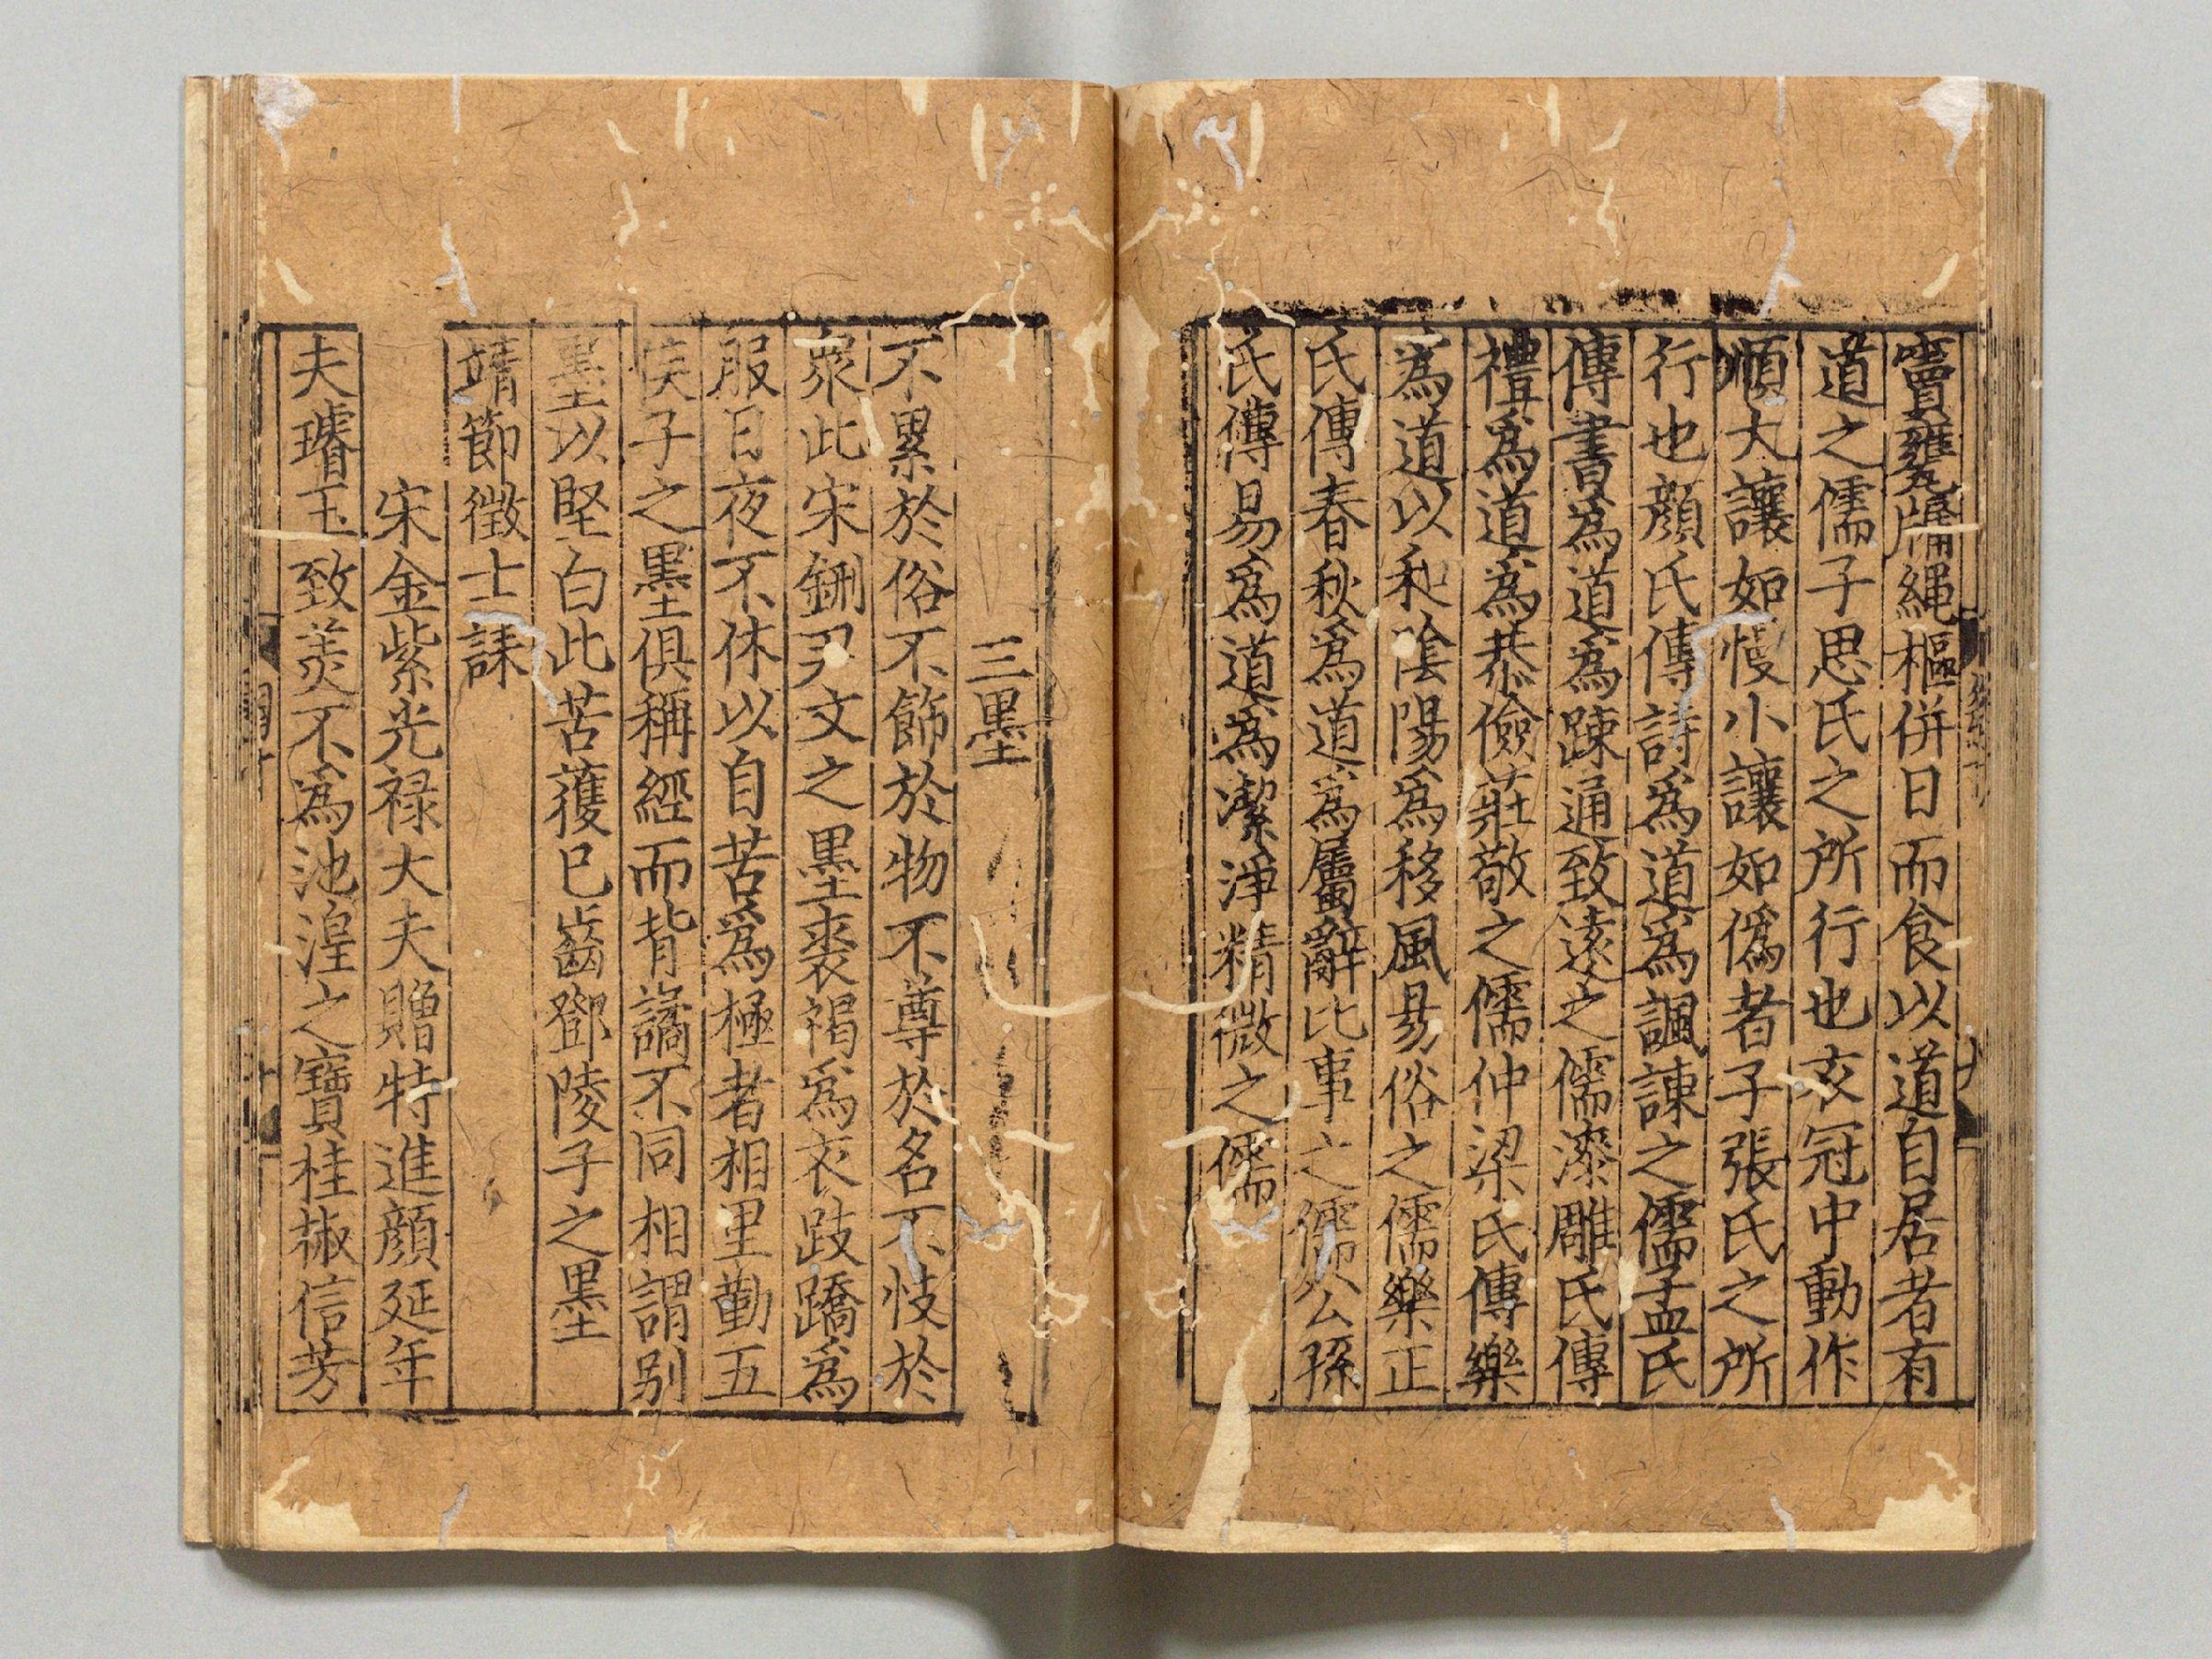 竇甕牖繩樞併日而食以道自居者有
道之儒子思氏之所行也衣冠中動作
順大讓如慢小讓如偽者子張氏之所
行也顔氏傳詩為道為諷諫之儒孟氏
傳書為道為踈通致遠之儒漆雕氏傳
禮為道為恭儉莊敬之儒仲梁氏傳樂
為道以和隂陽為移風易俗之儒樂正
氏傳春秋為道為屬辭比事之儒公孫
氏傳易為道為潔淨精微之儒
三墨
不累於俗不飾於物不尊於名不忮於
衆此宋鈃尹文之墨裘褐為衣跂蹻為
服日夜不休以自苦為極者相里勤五
侯子之墨俱稱經而背譎不同相謂别
墨以堅白此苦獲已齒鄧陵子之墨
靖節徵士誄
宋金紫光禄大夫贈特進顔延年
夫璿玉致羙不為池湟之寶桂椒信芳